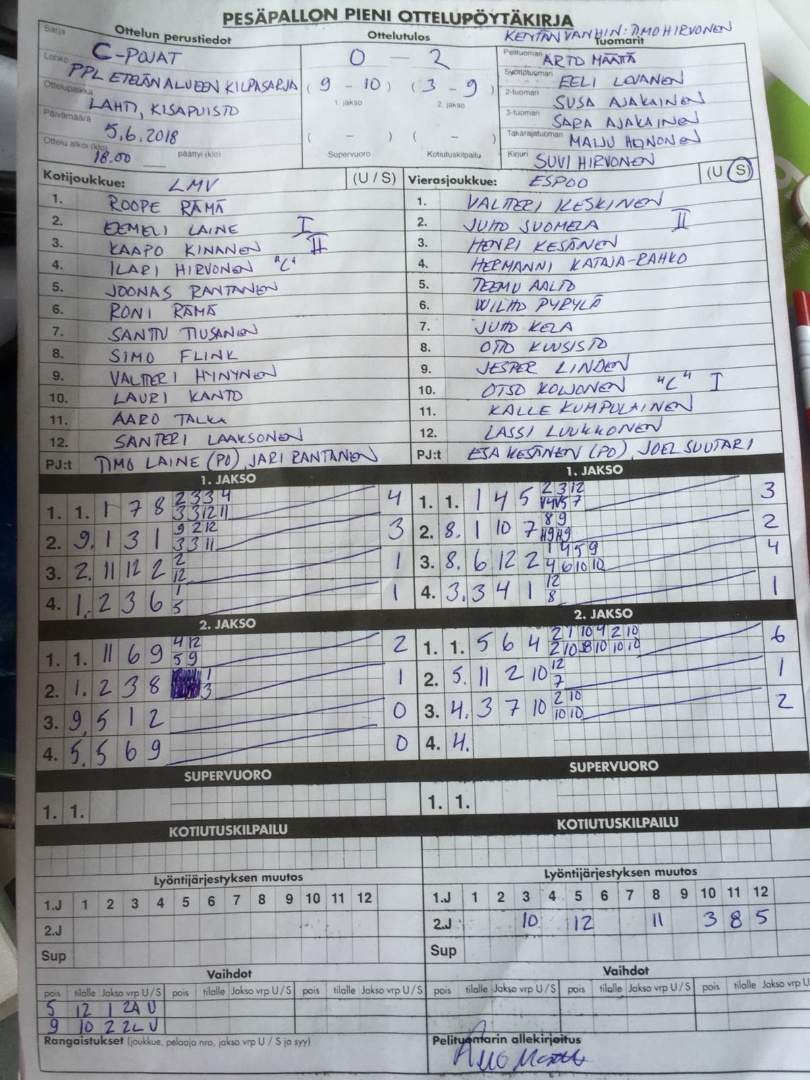 PESÄPALLON PIENI OTTELUPÖYTÄKIRJA
Sarja
Ottelun perustiedot
C-POJAT
Lohko
PPL ETELÄN ALUEEN KILPASARJA
Ottelupaikka
LAHTI, KISAPUISTO
Päivämäärä
5.6.2018
Ottelu alkoi (klo) päättyi (klo)
18.00
Ottelutulos
0 — 2
(9 - 10) (3 - 9)
1. jakso 2. jakso
( - ) ( - )
Supervuoro Kotiutuskilpailu
KENTÄNVANHIN: TIMO HIRVONEN
Tuomarit
Pelituomari ARTO MÄÄTTÄ
Syöttötuomari EELI LOVANEN
2-tuomari SUSA AJAKAINEN
3-tuomari SARA AJAKAINEN
Takarajatuomari MAIJU HONONEN
Kirjuri SUVI HIRVONEN
Kotijoukkue: LMV (U / S)
1. ROOPE RÄMÄ
2. EEMELI LAINE I
3. KAAPO KINANEN II
4. ILARI HIRVONEN "C"
5. JOONAS RANTANEN
6. RONI RÄMÄ
7. SANTTU TIUSANEN
8. SIMO FLINK
9. VALTTERI HYNYNEN
10. LAURI KANTO
11. AARO TALKA
12. SANTERI LAAKSONEN
PJ:t TIMO LAINE (PO), JARI RANTANEN
Vierasjoukkue: ESPOO (U / S)
1. VALTTERI KESKINEN
2. JUHO SUOMELA II
3. HENRI KESÄNEN
4. HERMANNI KATAJA-RAHKO
5. TEEMU AALTO
6. WILHO PYRYLÄ
7. JUHO KELA
8. OTTO KUUSISTO
9. JESPER LINDEN
10. OTSO KOLJONEN "C" I
11. KALLE KUMPULAINEN
12. LASSI LUUKKONEN
PJ:t ESA KESÄNEN (PO), JOEL SUUTARI
1. JAKSO
1. 1. 1 7 8 2 3 3 4 4
3 3 12 11
2. 9. 1 3 1 9 2 12 3
3 3 11
3. 2. 11 12 2 2 1
12
4. 1. 2 3 6 1 1
5
2. JAKSO
1. 1. 11 6 9 4 12 2
5 9
2. 1. 2 3 8 1 1
3
3. 9. 5 1 2 0
4. 5. 5 6 9 0
SUPERVUORO
1. 1.
KOTIUTUSKILPAILU
1. JAKSO
1. 1. 1 4 5 2 3 12 3
2. 8. 1 10 7 8 9 2
3. 8. 6 12 2 1 4 5 9 4
4 6 10 10
4. 3. 3 4 1 12 1
8
2. JAKSO
1. 1. 5 6 4 2 1 10 4 2 10 6
2 10 8 10 10 10
2. 5. 11 2 10 12 1
7
3. 4. 3 7 10 2 10 2
10 10
4. 4.
SUPERVUORO
1. 1.
KOTIUTUSKILPAILU
Lyöntijärjestyksen muutos
1.J 1 2 3 4 5 6 7 8 9 10 11 12
2.J
Sup
Vaihdot
pois tilalle Jakso vrp U / S pois tilalle Jakso vrp U / S pois tilalle Jakso vrp U / S
5 12 1 2A U
9 10 2 2L U
Rangaistukset (joukkue, pelaaja nro, jakso vrp U / S ja syy)
Lyöntijärjestyksen muutos
1.J 1 2 3 4 5 6 7 8 9 10 11 12
2.J 10 12 11 3 8 5
Sup
Vaihdot
pois tilalle Jakso vrp U / S pois tilalle Jakso vrp U / S pois tilalle Jakso vrp U
Pelituomarin allekirjoitus